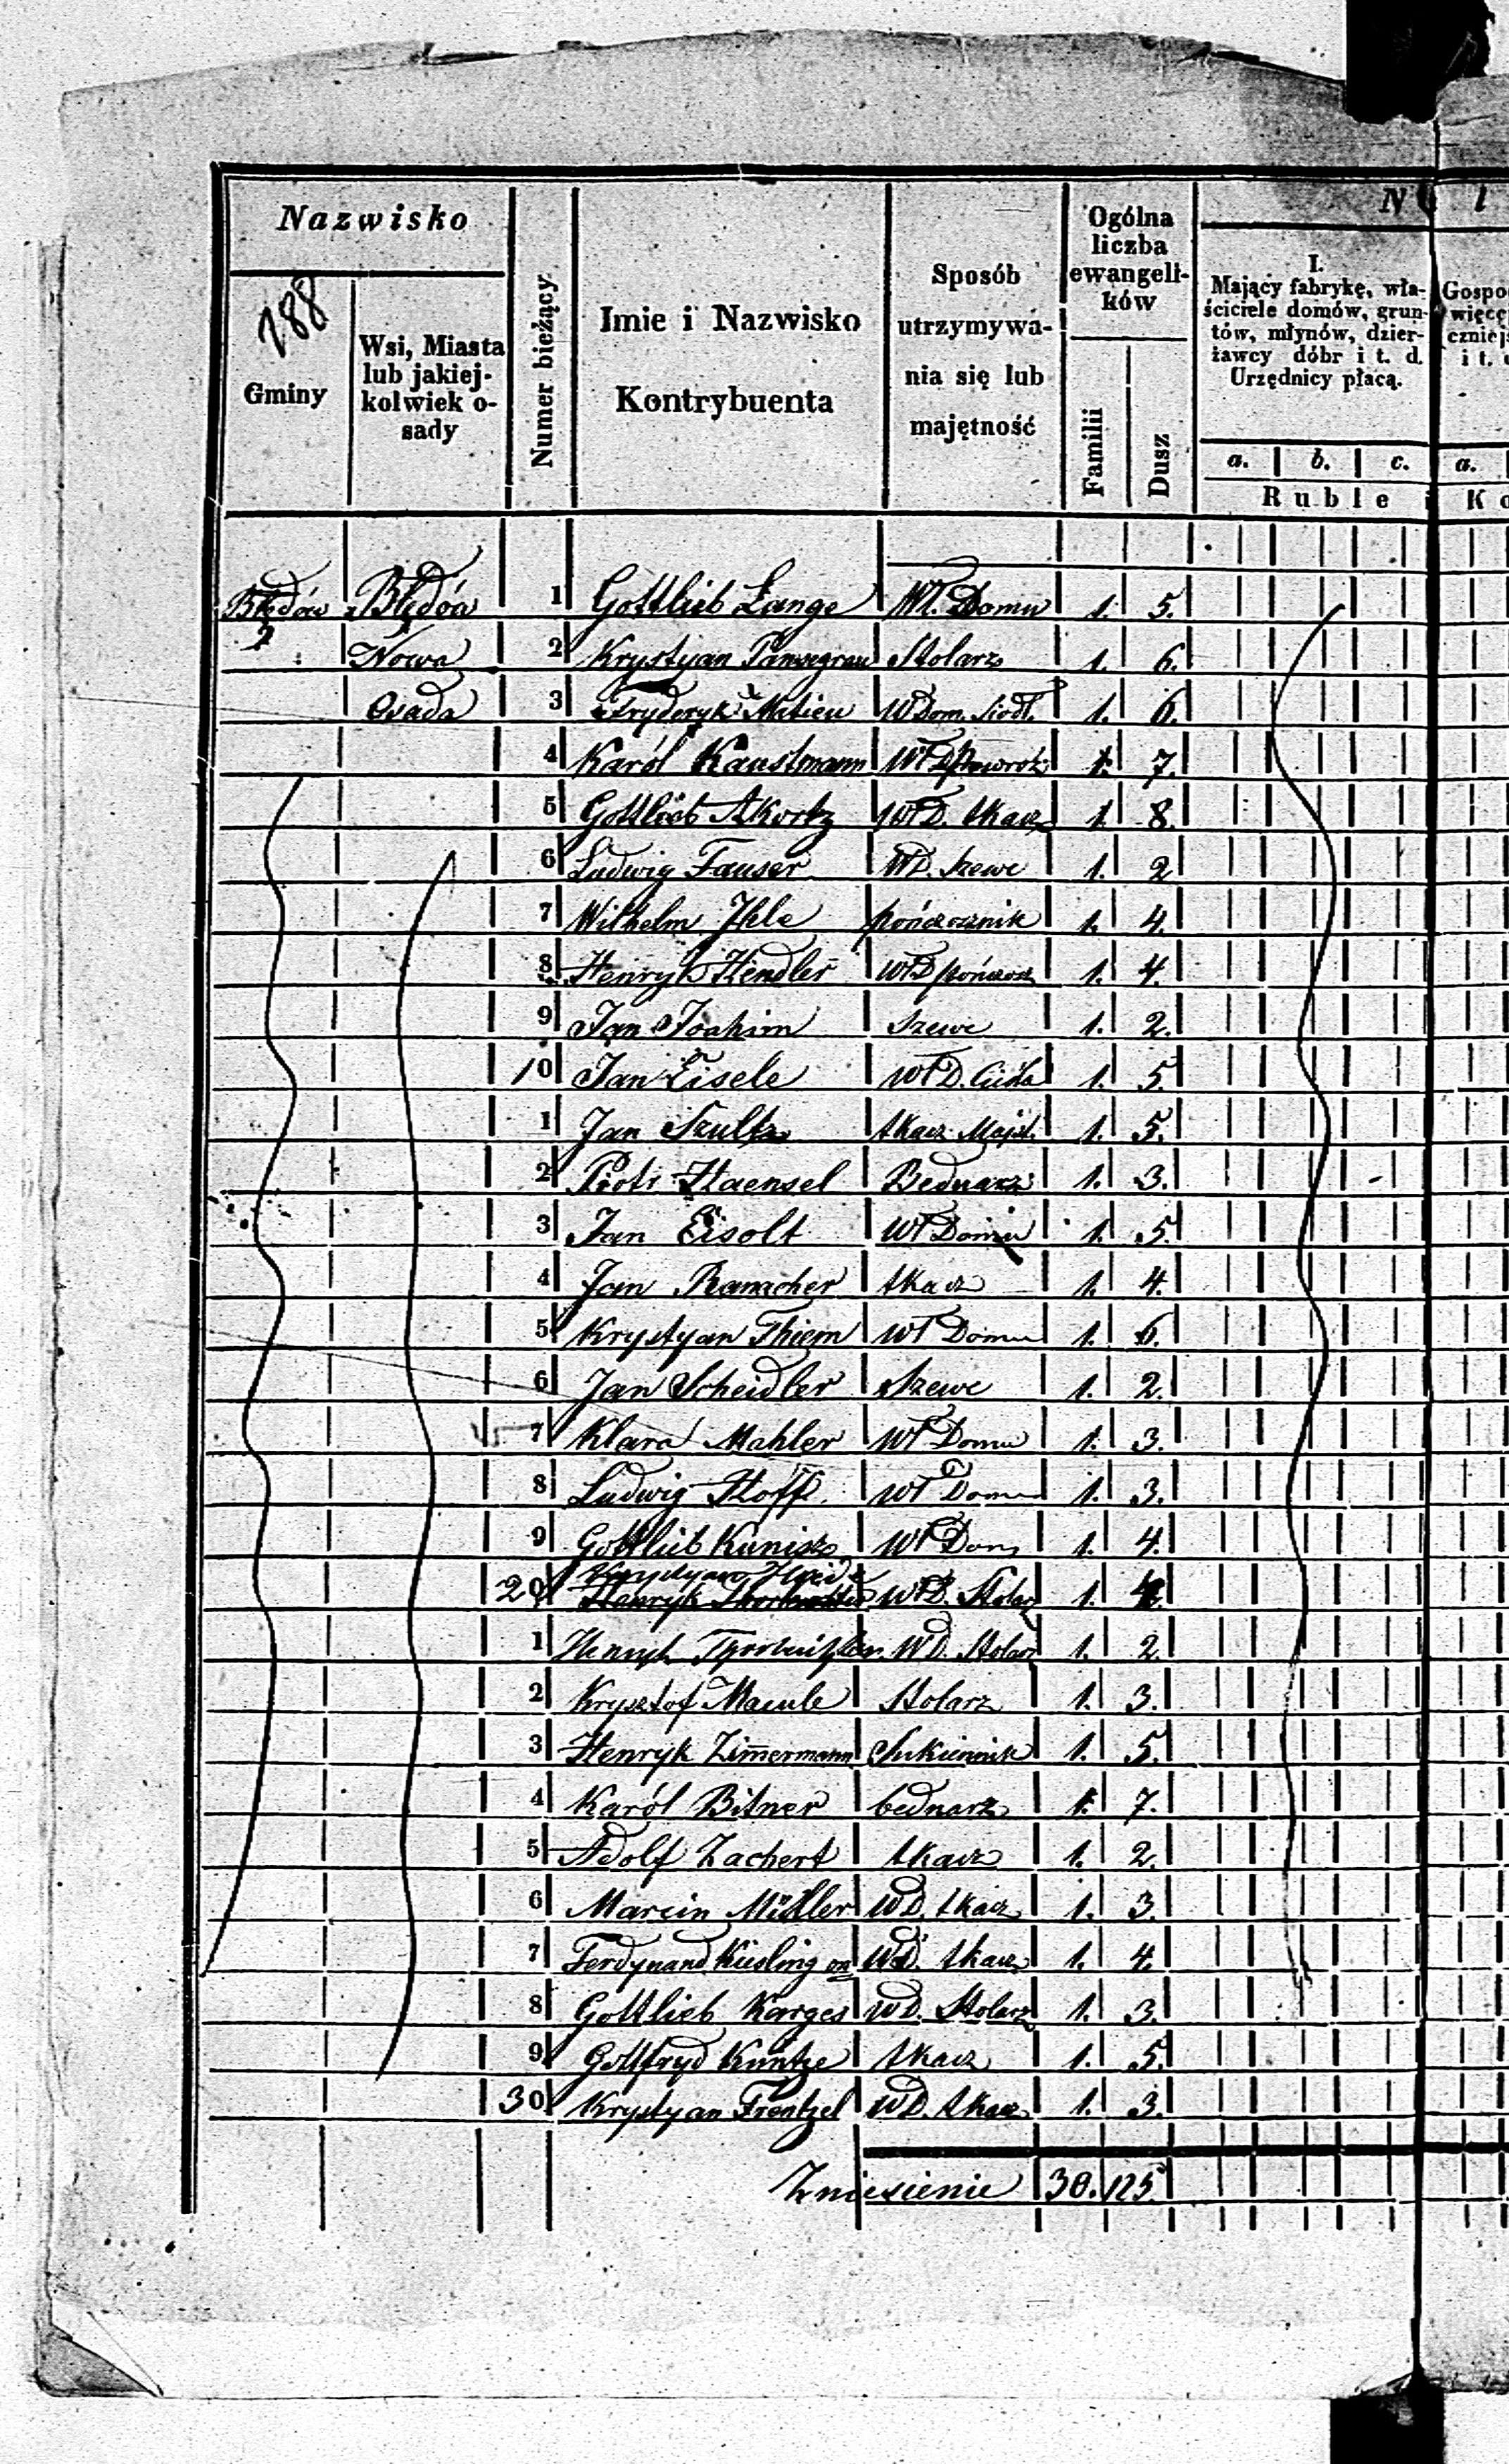 Nazwisko
188
Gminy
Wsi, Miasta
lub jakiej-
kolwiek o-
sady
Numer bieżący.
Imie i Nazwisko
Kontrybuenta
Sposób
utrzymywa-
nia się lub
majętność
Ogólna
liczba
ewangeli-
ków
Familii
Dusz
N l
I.
Mający fabrykę, wła-
ściciele domów, grun-
tów, młynów, dzier-
żawcy dóbr i t. d.
Urzędnicy płacą.
a. b. c.
Ruble
Gospo
więce
czniej
i t.
a.
K
Błędów Błędów 1 Gottlieb Lange Wł. Domu 1. 5.
2 Nowa 2 Krystyan Pansegrau Stolarz 1. 6.
Osada 3 Fryderyk Matieu WDom. Siodł. 1. 6.
4 Karól Kaustmann WłD 1. 7.
5 Gottlieb WłD. tkacz 1. 8.
6 Ludwig Fauser WłD. Szewc 1. 2
7 Wilhelm Ihle pończosznik 1. 4.
8 Henryk Hendler WłD pończosz 1. 4.
9 Jan Joahim Szewc 1. 2.
10 Jan Eisele WłD. Cieśla 1. 5.
1 Jan Szultz tkacz Majst. 1. 5.
2 Piotr Haensel Bednarz 1. 3.
3 Jan Eisolt Wł Domu 1. 5.
4 Jan Ramacher tkacz 1. 4.
5 Krystyan Thiem Wł Domu 1. 6.
6 Jan Scheidler Szewc 1. 2.
7 Klara Mahler Wł Domu 1. 3.
8 Ludwig Hoff Wł Domu 1. 3.
9 Gottlieb Kunisz Wł Dom 1. 4.
Krystyan
20 Henryk WłD. Stolarz 1. 4.
1 Henryk WD. Stolarz 1. 2.
2 Krysztof Macule Stolarz 1. 3.
3 Henryk Zimermann Sukiennik 1. 5.
4 Karól Bitner bednarz 1. 7.
5 Adolf Zachert tkacz 1. 2.
6 Marcin Müller WD. tkacz 1. 3.
7 Ferdynand Kiesling WD. tkacz 1. 4.
8 Gottlieb Karges WD. Stolarz 1. 3.
9 Gottfryd Kuntze tkacz 1. 5.
30 Krystyan Frentzel WD. tkacz 1. 3.
Zniesienie 30. 125.